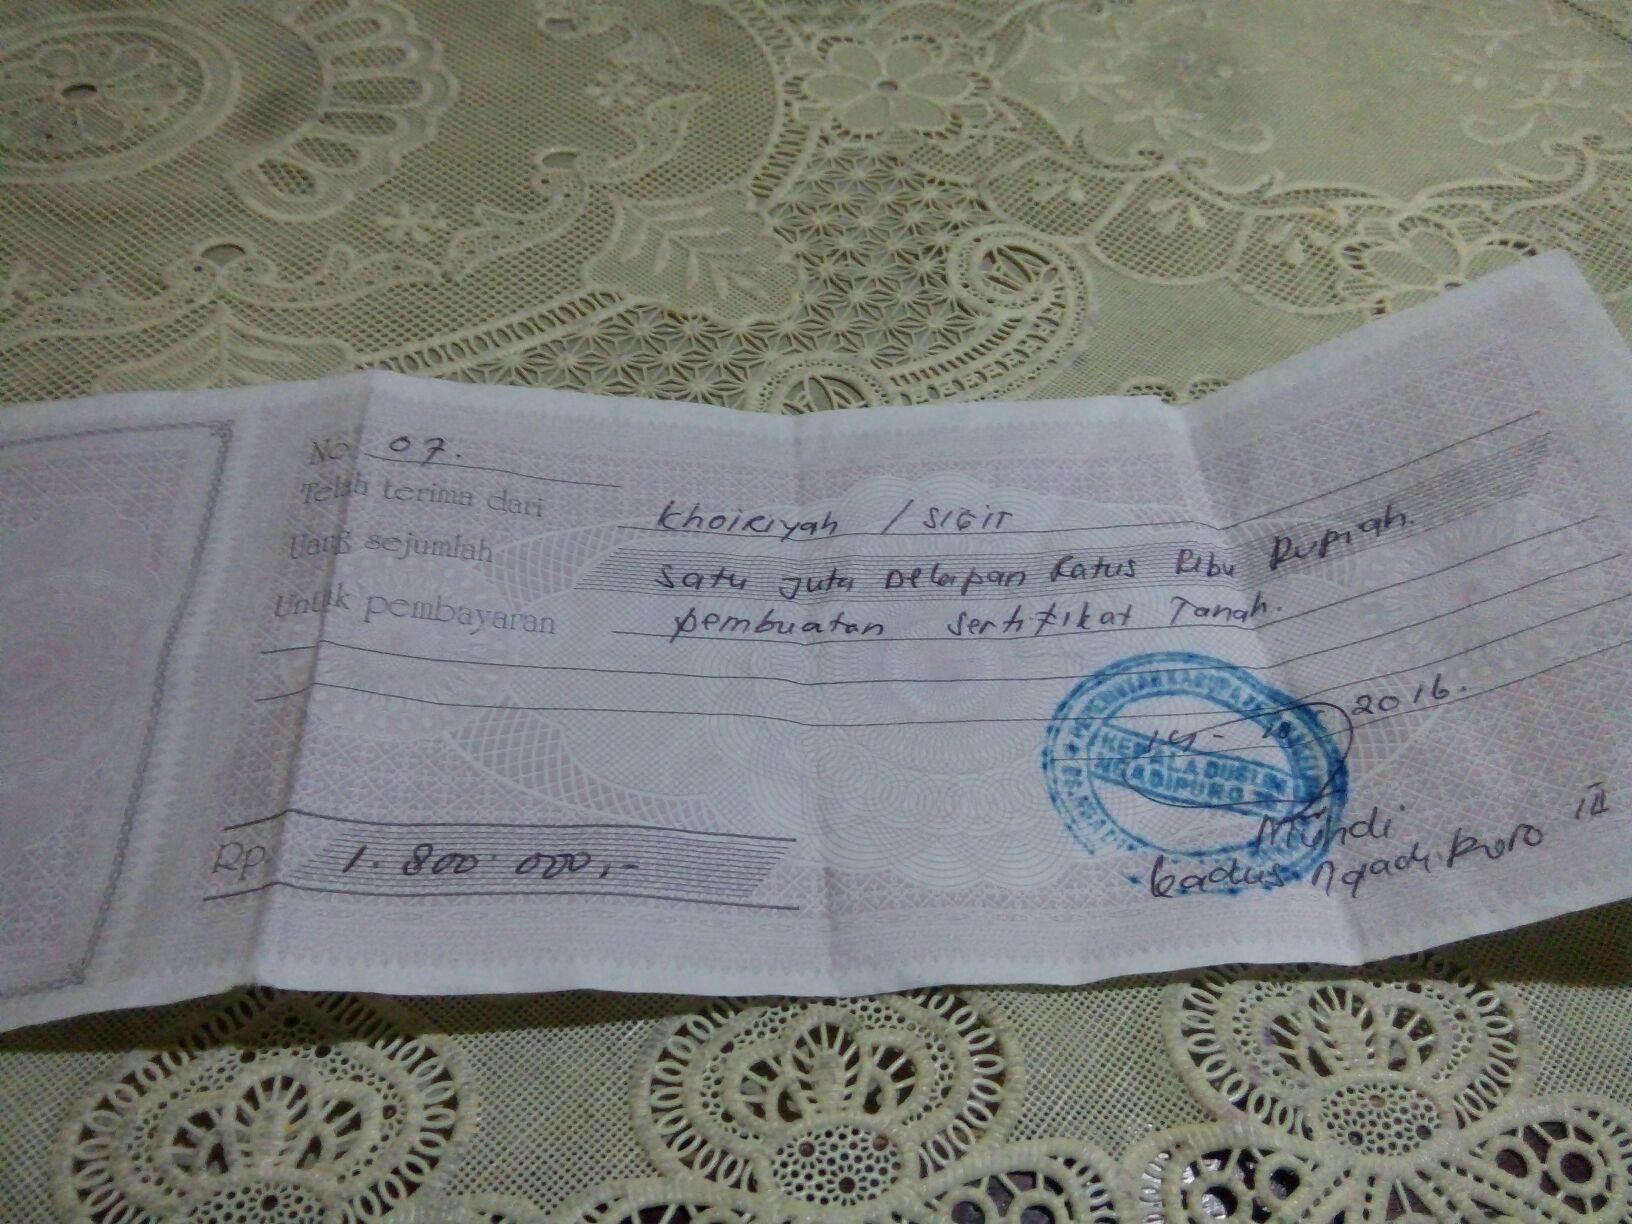 No 07.
Telah terima dari Khoiriyah / SIGIT
Uang sejumlah Satu Juta Delapan Ratus Ribu Rupiah.
Untuk pembayaran pembuatan Sertifikat Tanah.
2016.
KEPALA DUSUN
NGADIPURO
Rp. 1.800.000,-
Muhdi
Kadus Ngadipuro III